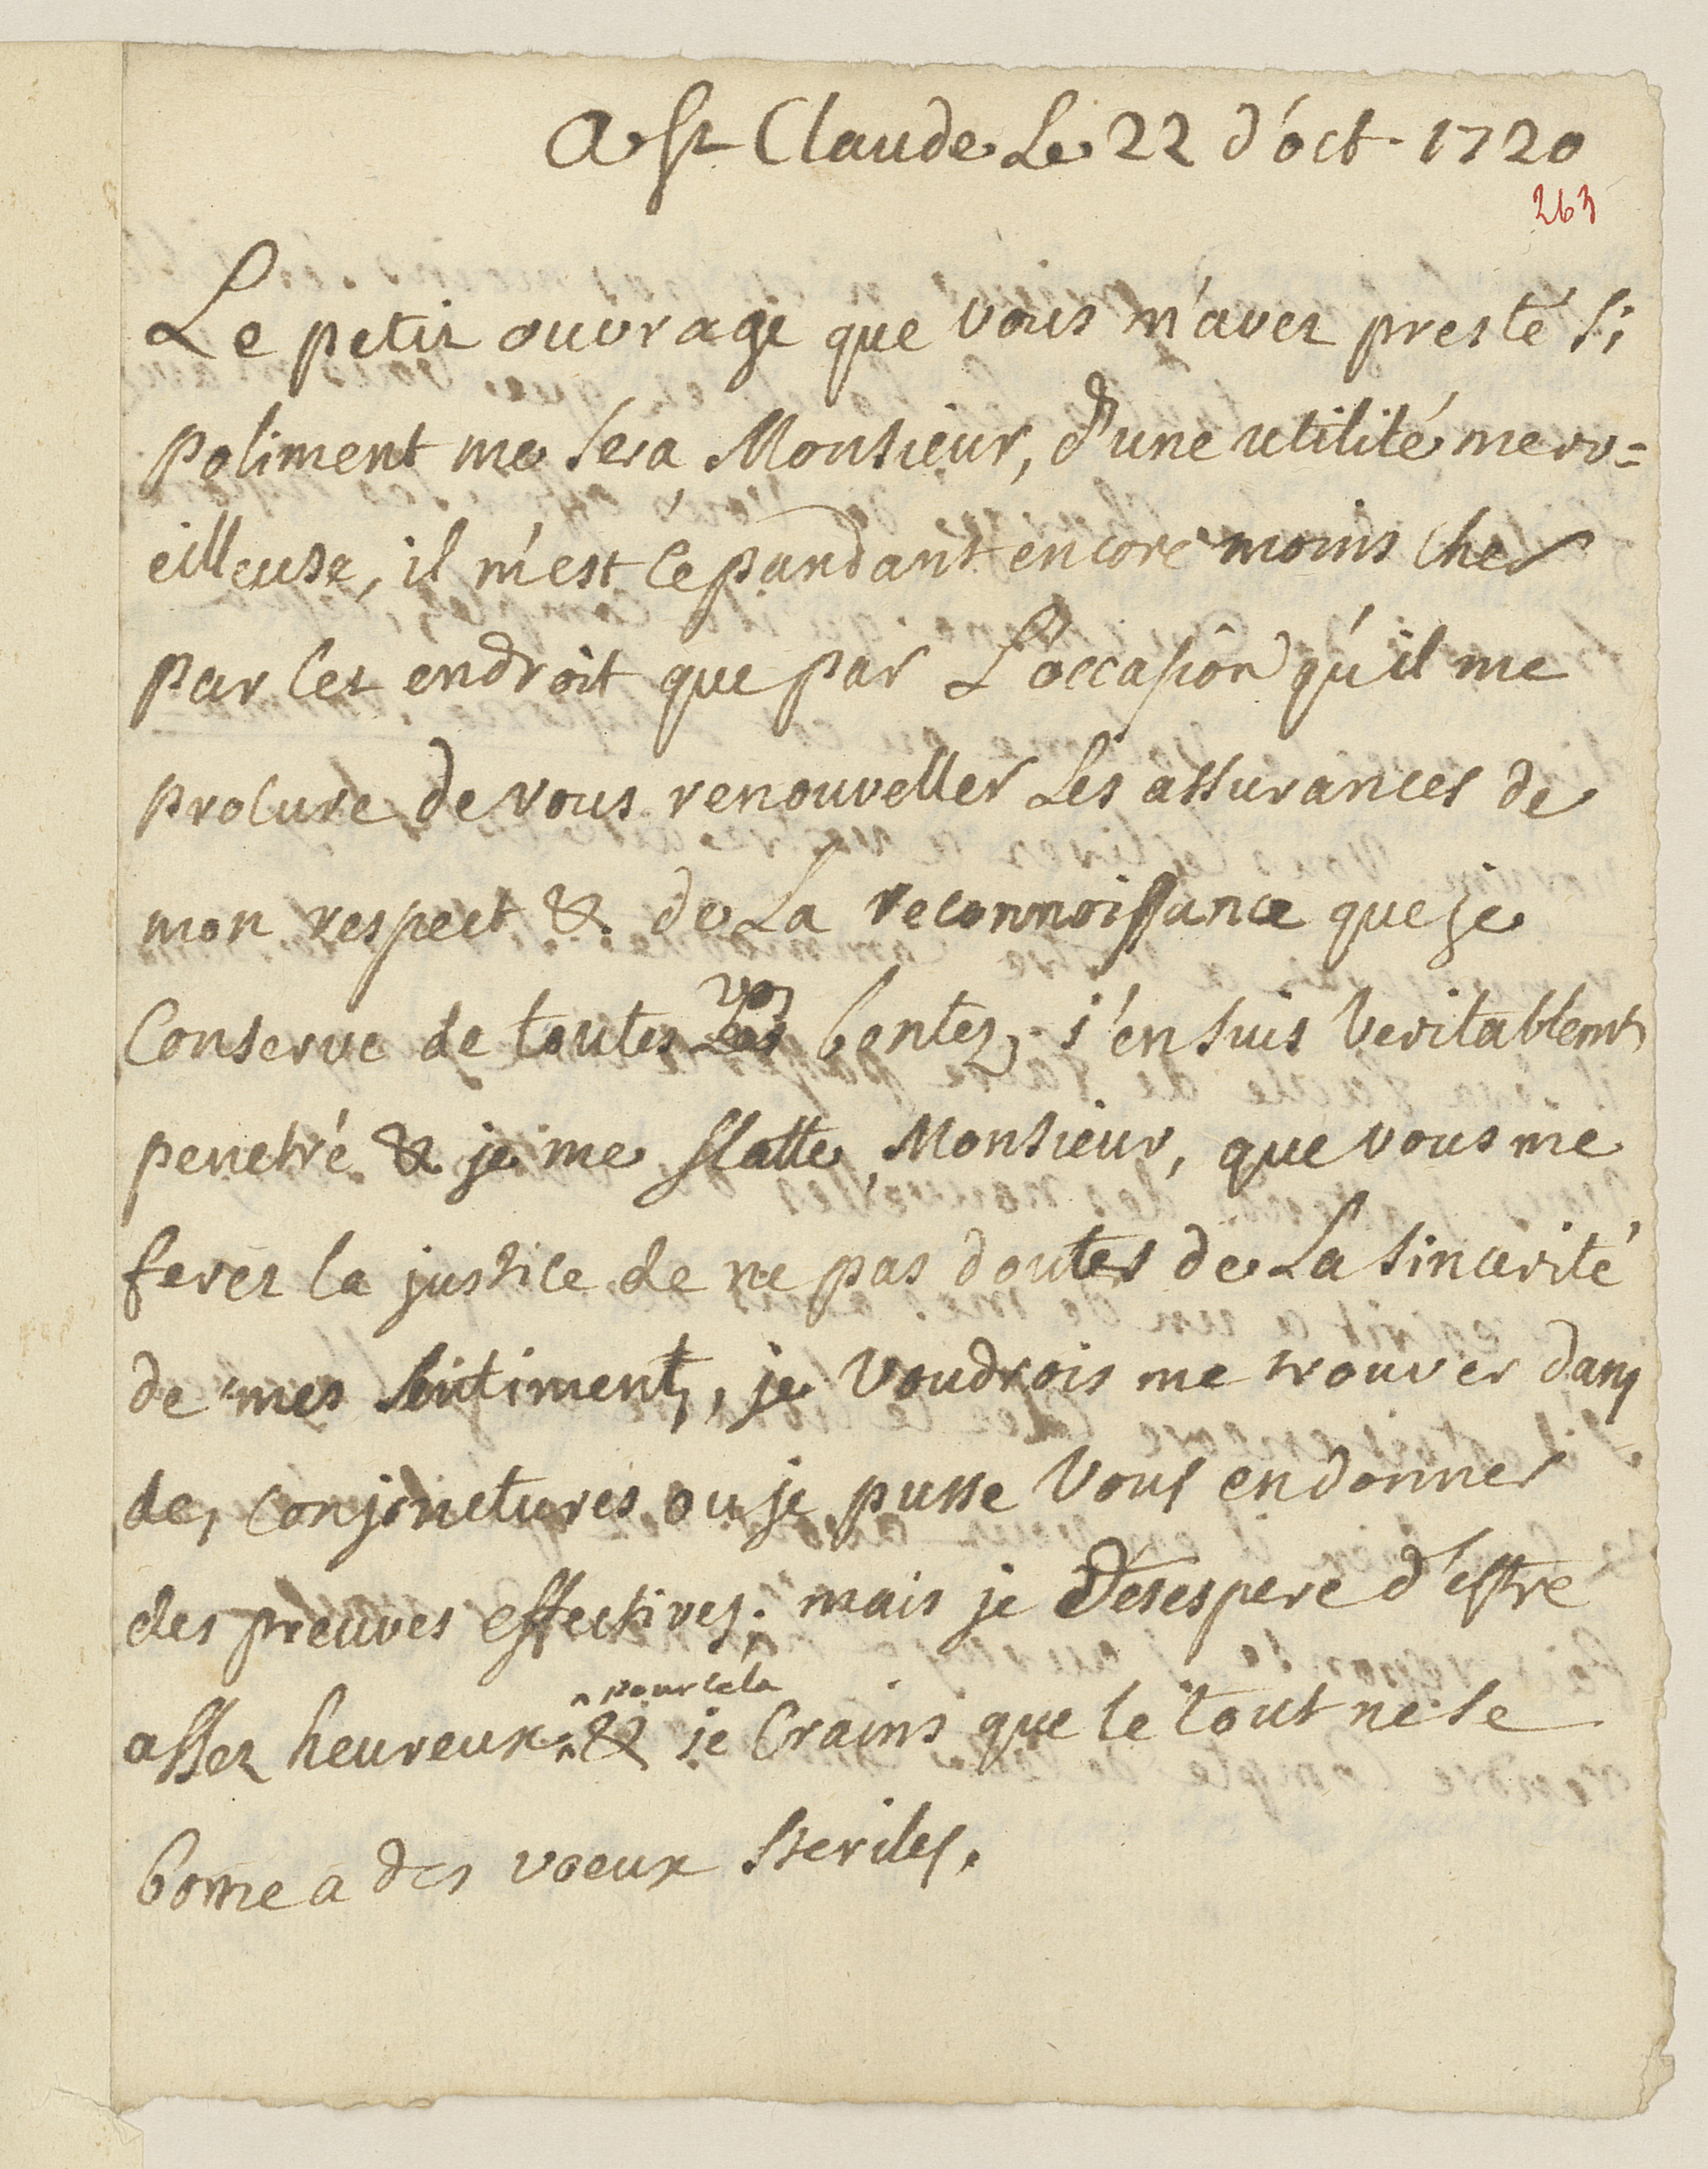 A St Claude Le 22 d'oct. 1720
263
Le petit ouvrage que vous m'avez presté si
poliment me sera, Monsieur, d'une utilité merv=
eilleuse, il m'est cépandant encore moins cher
par cet endroit que par L'occasion qu'il me
procure de vous renouveller Les assurances de
mon respect & de La reconnoissance que je
Conserve de toutes vos bontez, j'en suis veritablemt
penetré & je me flatte, Monsieur, que vous me
ferez la justice de ne pas douter de La sincerité
de mes sentiments, je voudrois me trouver dans
des conjonctures ou je pusse vous en donner
des preuves effectives; mais je desespere d'estre
pour céla
assez heureux & je crains que le tout ne se
borne a des voeux steriles.